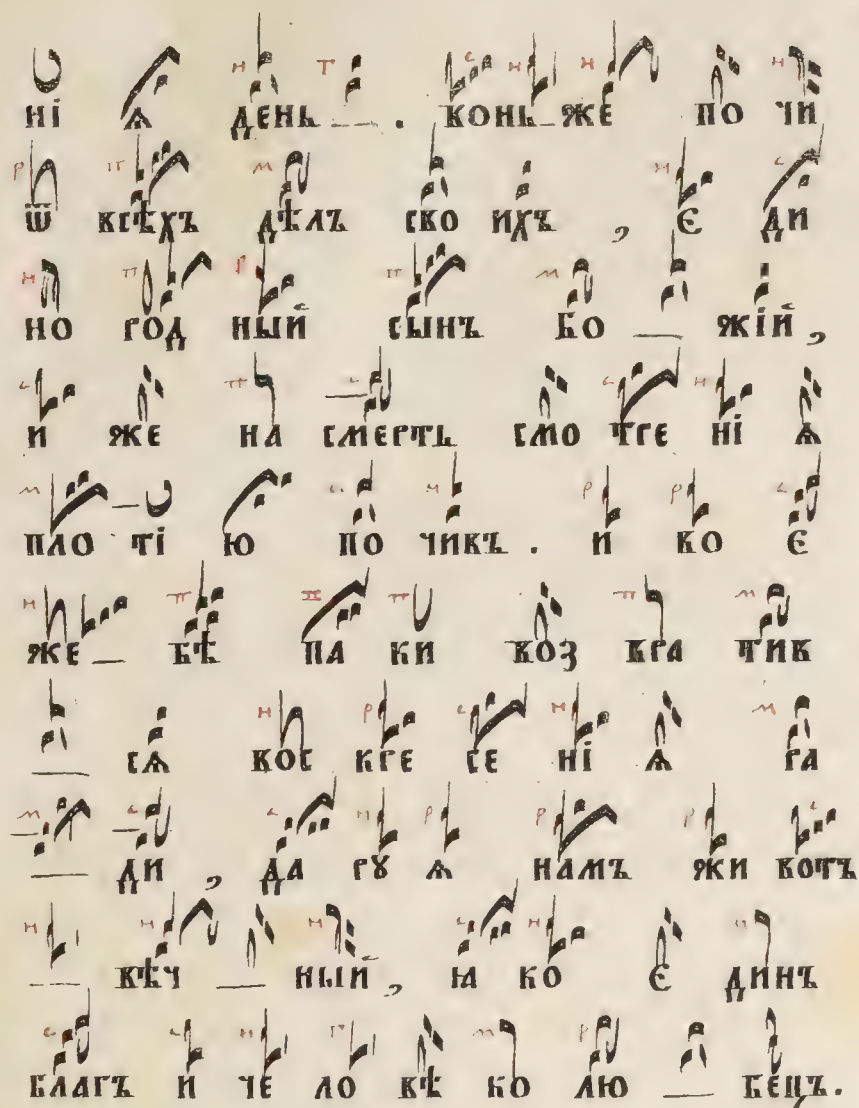 нї ѧ день — . вонь — же по чи
ѿ всѣхъ дѣлъ сво ихъ , є ди
но род ный сынъ бо — жїй ,
и же на смерть смо тре нї ѧ
пло тї ю по чивъ . и во є
же — бѣ па ки воз вра тив
— сѧ вос кре се нї ѧ ра
— ди , да рꙋ ѧ намъ жи вотъ
— вѣч — ный , ꙗ ко є динъ
благъ и че ло вѣ ко лю — бецъ .